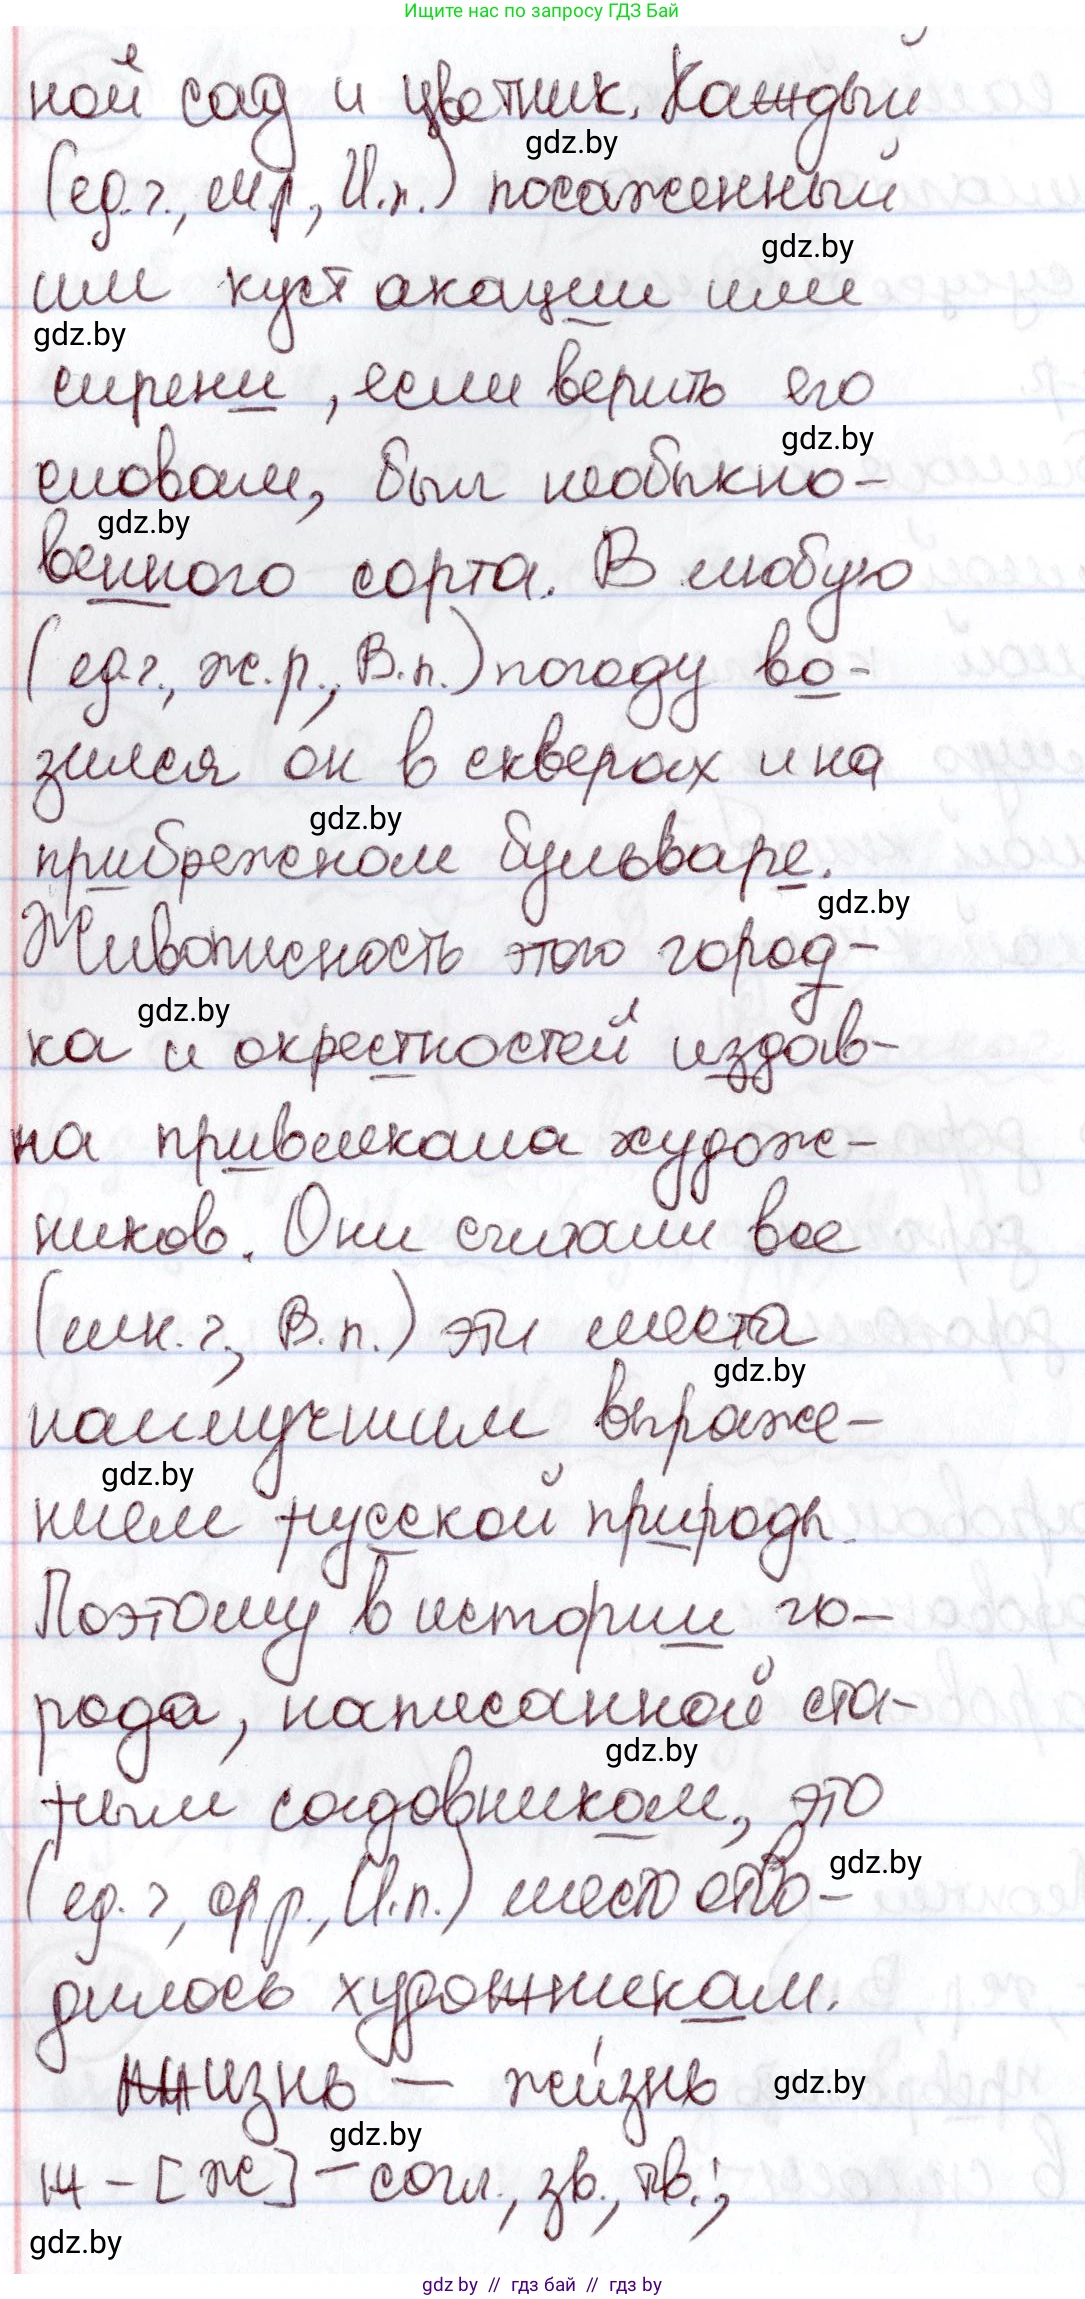 Ищите нас по запросу ГДЗ Бай
ной сад и цветник. Каждый
gdz.by
(ед.ч., м.р., И.п.) посаженный
gdz.by
им куст акации или
gdz.by
сирени, если верить его
gdz.by
словам, был необыкно-
gdz.by
венного сорта. В любую
(ед.ч., ж.р., В.п.) погоду во-
зился он в скверах и на
gdz.by
прибрежном бульваре.
gdz.by
Живописность этого город-
gdz.by
ка и окрестностей издав-
на привлекала худож-
ников. Они считали все
(мн.ч., В.п.) эти места
gdz.by
наилучшим выраже-
gdz.by
нием русской природы.
Поэтому в истории го-
рода, написанной ста-
gdz.by
рым садовником, это
gdz.by
(ед.ч., ср.р., И.п.) место отво-
дилось художникам.
Жизнь – жи́знь
gdz.by
gdz.by
ж – [ж] – согл., зв., тв.;
gdz.by
gdz by // гдз бай // гдз by